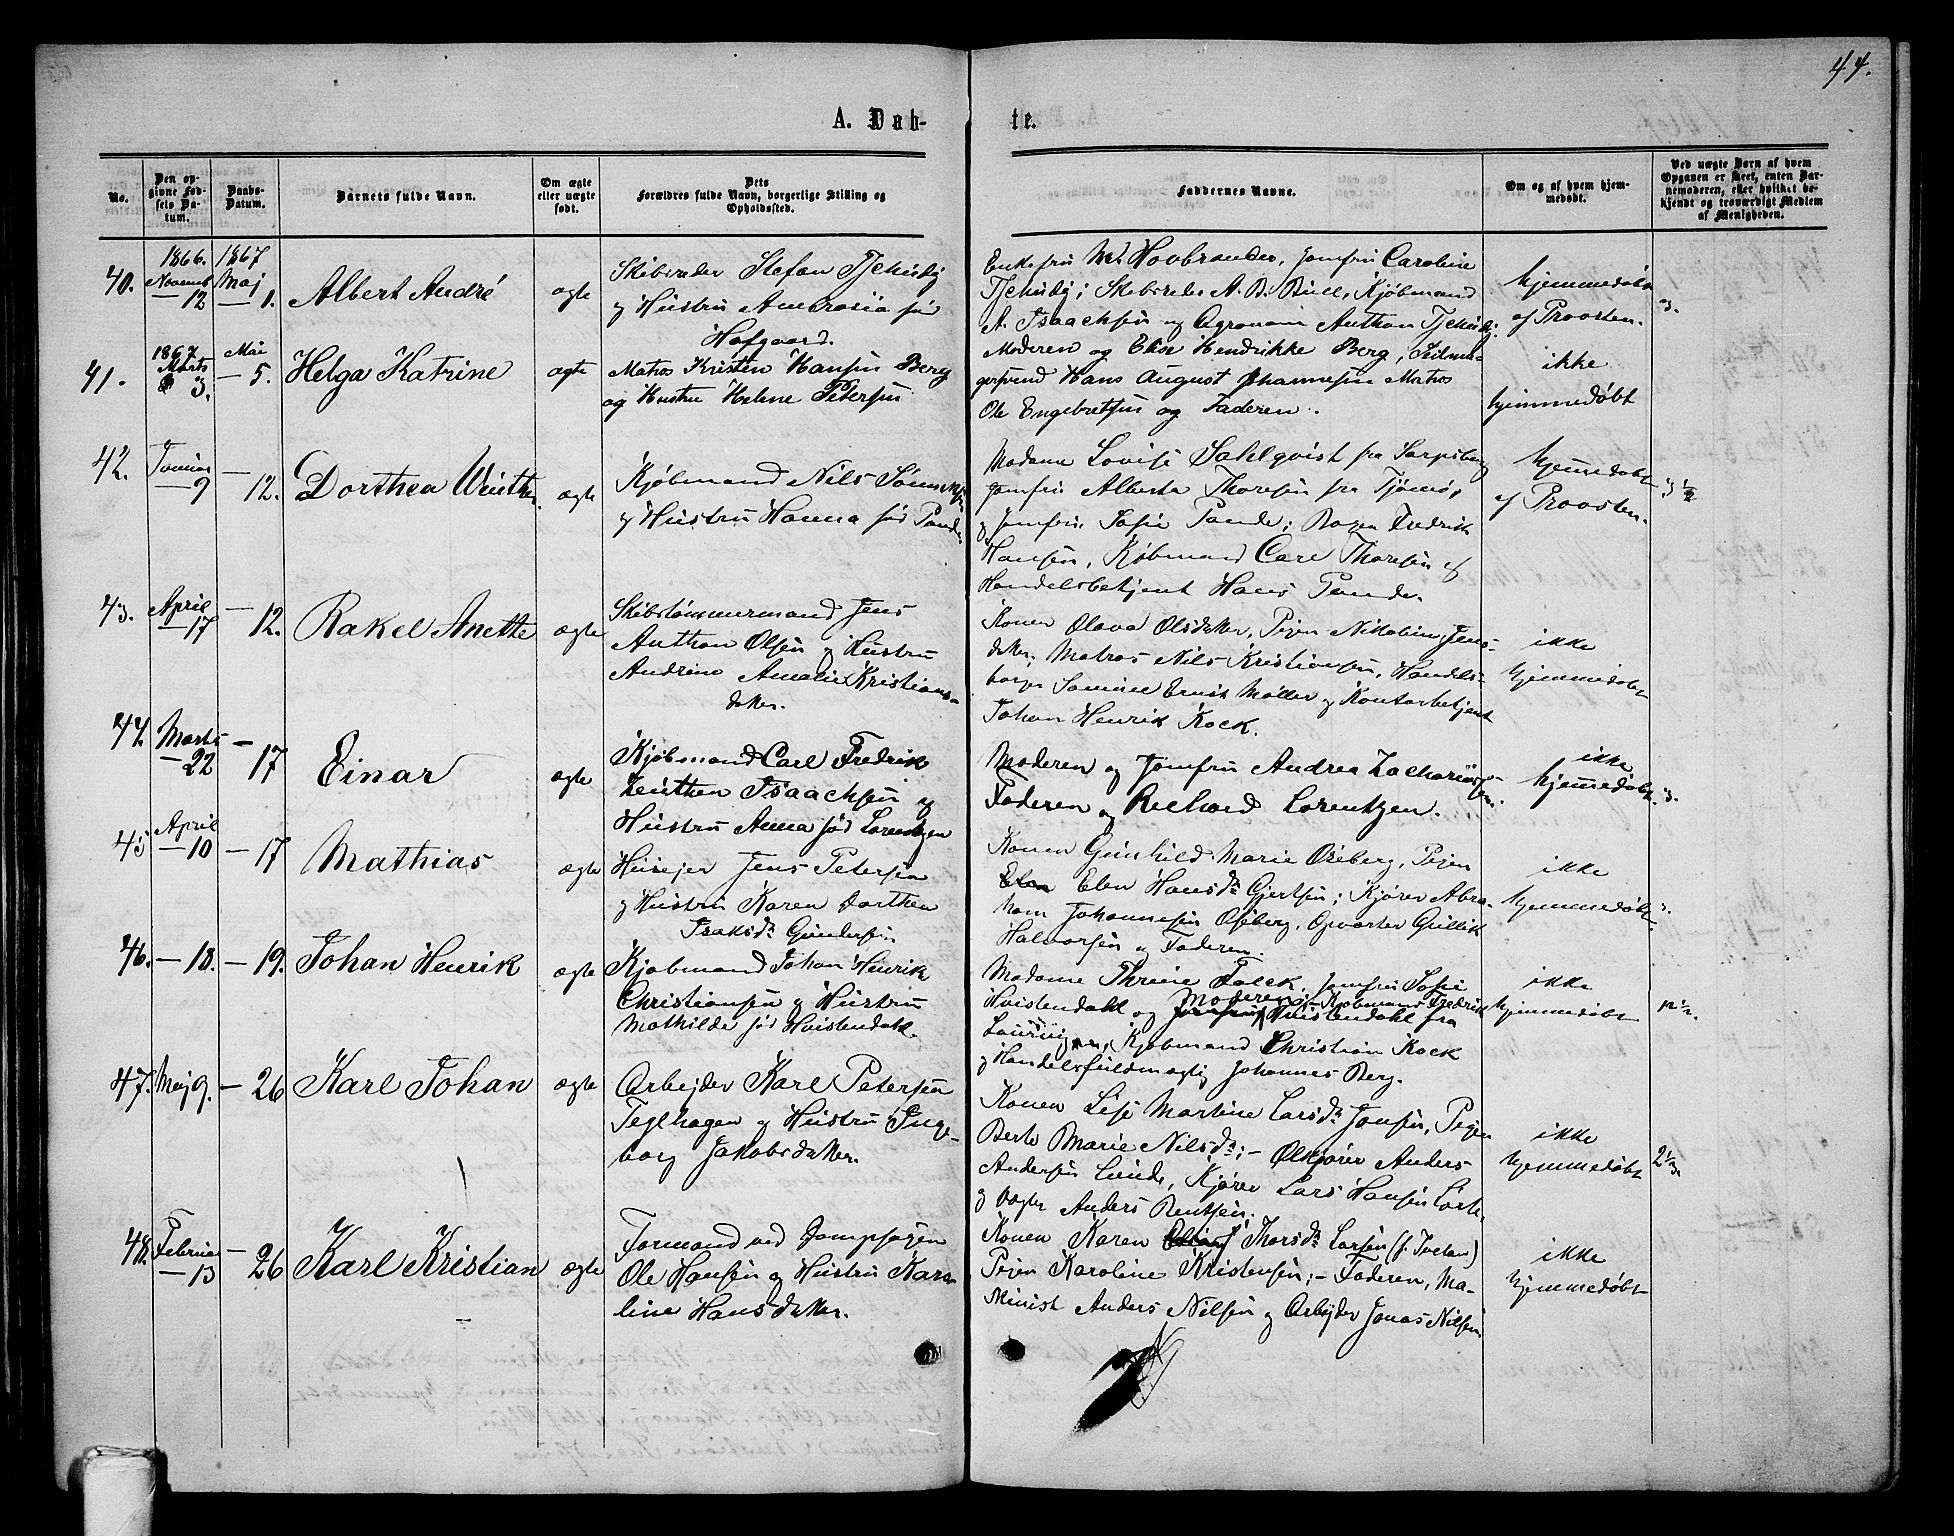 44.
A. Døb-
te.
No.
Den op-
givne Fød-
sels Da-
tum.
Daabs-
Datum.
Barnets fulde Navn.
Om ægte
eller uægte
født.
Dets
Forældres fulde Navn, borgerlige Stilling og
Opholdssted.
Faddernes Navne.
Om og af hvem hjem-
medøbt.
Ved uægte Børn af hvem
Opgaven er skeet, enten Bar-
nemoderen, eller hvilket be-
kjendt og troværdigt Medlem
af Menigheden.
40.
1866.
Novemb
— 12
1867
Maj
— 1.
Albert André
ægte
Skibsreder Stefan Tschudy
og Hustru Ambrosia født
Hofgaard.
Enkefru M. Hovbrander, Jomfru Caroline
Tschudy; Skibsreder A. B. Bull, Kjøbmand
A. Isaachsen og Agronom Anthon Tschudy.
hjemmedøbt
af Provsten.
3.
41.
1867
Marts
3.
Mai
— 5.
Helga Katrine
ægte
Matros Kristen Hansen Berg
og Hustru Helene Petersen
Moderen og Elise Hendrikke Berg, Seilma-
gersvend Hans August Johannesen Matros
Ole Engebretsen og Faderen.
ikke
hjemmedøbt
42.
Januar
— 9
— 12.
Dorthea Winther
ægte
Kjøbmand Nils
og Hustru Hanna født Pande
Madame Lovise Sahlqvist fra Sarpsborg
Jomfru Alberta Thoresen fra Tjømø,
og Jomfru Sofie Pande; Bager Fredrik
Hansen, Kjøbmand Carl Thoresen og
Handelsbetjent Hans Pande.
hjemmedøbt
af Provsten.
3 1/2
43.
April
— 17
— 12.
Rakel Anette
ægte
Skibstømmermand Jens
Anthon Olsen og Hustru
Andrine Amalie Kristians-
datter.
Konen Olava Olsdatter, Pigen Nikoline Jens-
datter; Matros Nils Kristiansen, Handels-
borger Samuel Ernst Møller og Kontorbetjent
Johan Henrik Kock.
ikke
hjemmedøbt
44.
Marts
— 22
— 17
Einar
ægte
Kjøbmand Carl Fredrik
Leuthen Isaachsen og
Hustru Anna født Lorentzen
Moderen og Jomfru Andrea Zachariasen.
Faderen og Richard Lorentzen.
ikke
hjemmedøbt.
3.
45
April
— 10
— 17
Mathias
ægte
Huusejer Jens Petersen
og Hustru Karen Dorthea
Isaksdr Gundersen
Konen Gunhild Marie Oseberg, Pigen
Elen Hansdr Gjertsen; Kjører Abra-
ham Johannesen Oseberg, Opvarter Gullik
Halvorsen og Faderen.
ikke
hjemmedøbt
46.
— 18.
— 19.
Johan Henrik
ægte
Kjøbmand Johan Henrik
Christiansen og Hustru
Mathilde født Hvistendahl.
Madame Thrine Falck, Jomfru Sofie
Hvistendahl og Moderen; Kjøbmand Fredrik
Hvistendahl fra
Laurvigen, Kjøbmand Christian Kock
og Handelsfuldmægtig Johannes Berg.
ikke
hjemmedøbt
47.
Maj 9.
— 26
Karl Johan
ægte
Arbejder Karl Petersen
Teglhagen og Hustru Inge-
borg Jakobsdatter.
Konen Lise Martine Larsdr Jonsen, Pigen
Berte Marie Nilsdr; — Ølkjører Anders
Andersen Lunde, Kjører Lars Hansen
og Vægter Anders Bentsen.
ikke
hjemmedøbt
2 1/2
48.
Februar
— 13
— 26
Karl Kristian
ægte
Formand ved Dampsagen
Ole Hansen og Hustru Karo-
line Hansdatter.
Konen Karen Thorsdr Larsen
Pigen Karoline Kristensen; — Faderen, Ma-
skinist Anders Nilsen og Arbejder Jonas Nilsen
ikke
hjemmedøbt